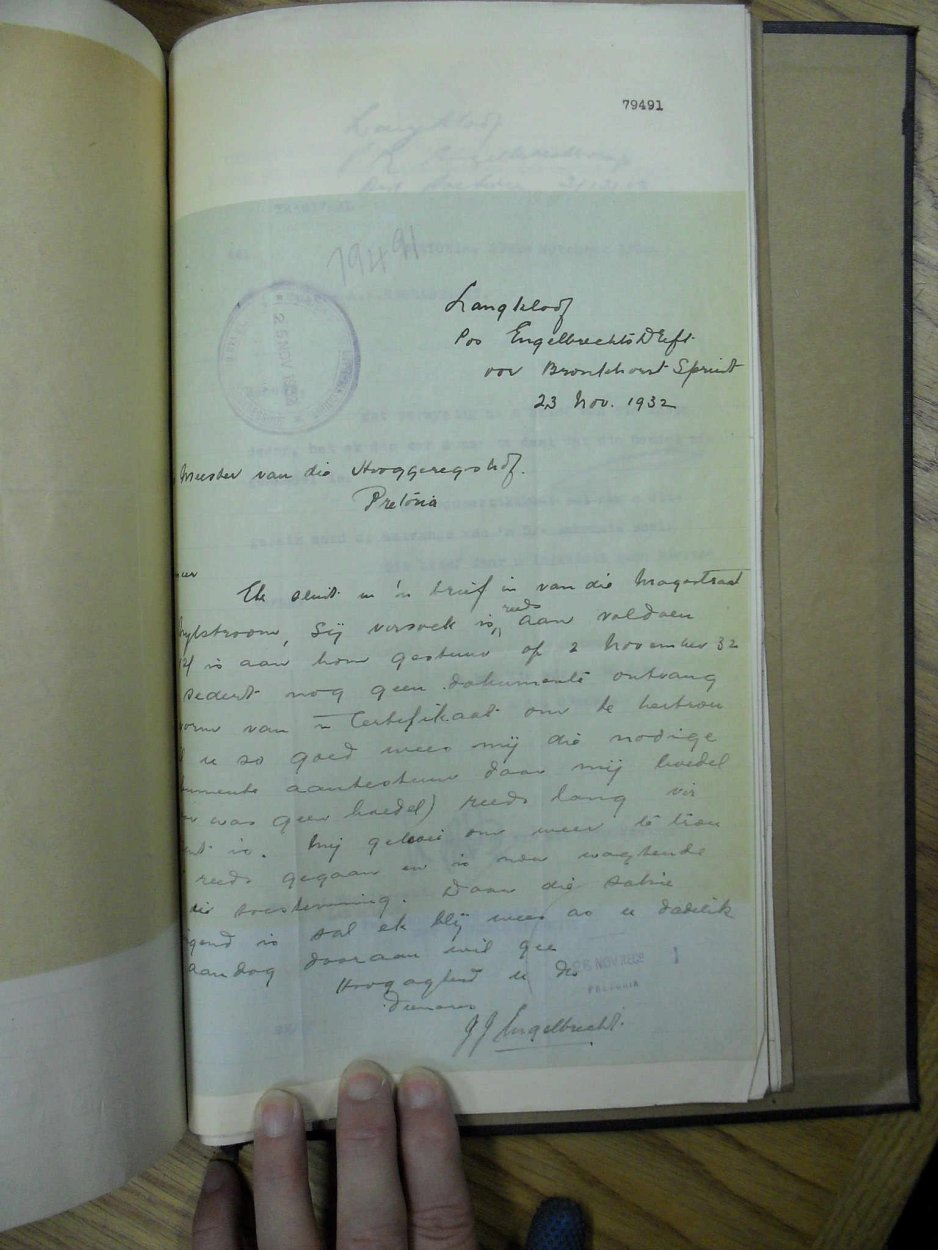 79491
79491
Langkloof
Pos Engelbrechts Drift
oor Bronkhorst Spruit
23 Nov. 1932
25 NOV 1932
Meester van die Hooggeregshof.
Pretoria
Ek sluit in 'n brief in van die Magestraat
Nylstroom, Sij versoek is reeds aan voldoen
is aan hom gestuur op 2 November 32
sedert nog geen dokumente ontvang
vorm van 'n Certifikaat om te hertrou
u so goed wees mij die nodige
aantestuur daar mij boedel
was geen boedel) reeds lang
is. Mij gebooie om weer te trou
reeds gegaan en is nou wagtende
die toestemming. Daar die sakie
is sal ek blij wees as u dadelik
aandag daaraan wil gee
Hoogagtend u dw
Dienares
JJ Engelbrecht.
PRETORIA